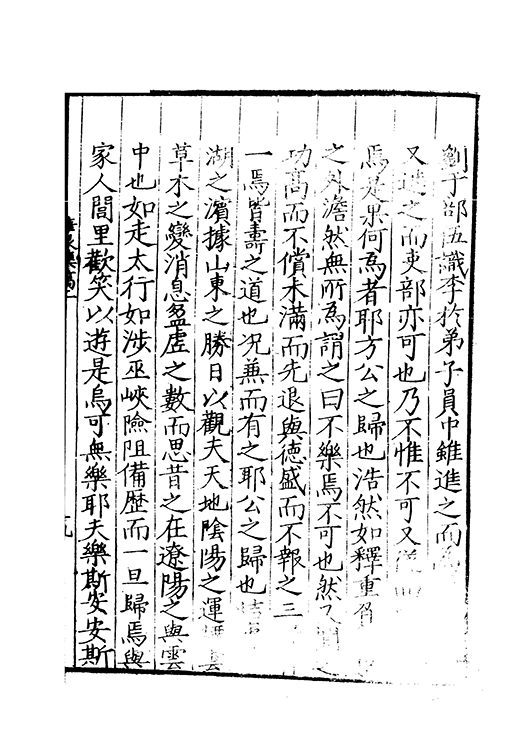 劉于部伍識李於弟子員中雖進之而
又進之而吏部亦可也乃不惟不可又從而
焉是果何為者耶方公之歸也浩然如釋重負
之外澹然無所為謂之曰不樂焉不可也然又聞之
功高而不償未滿而先退與德盛而不報之三
一焉皆壽之道也况兼而有之耶公之歸也
湖之濵據山東之勝日以觀夫天地陰陽之運
草木之變消息盈虛之數而思昔之在遼陽之與雲
中也如走太行如涉巫峽險阻備歴而一旦歸焉與
家人閭里歡笑以遊是烏可無樂耶夫樂斯安安斯